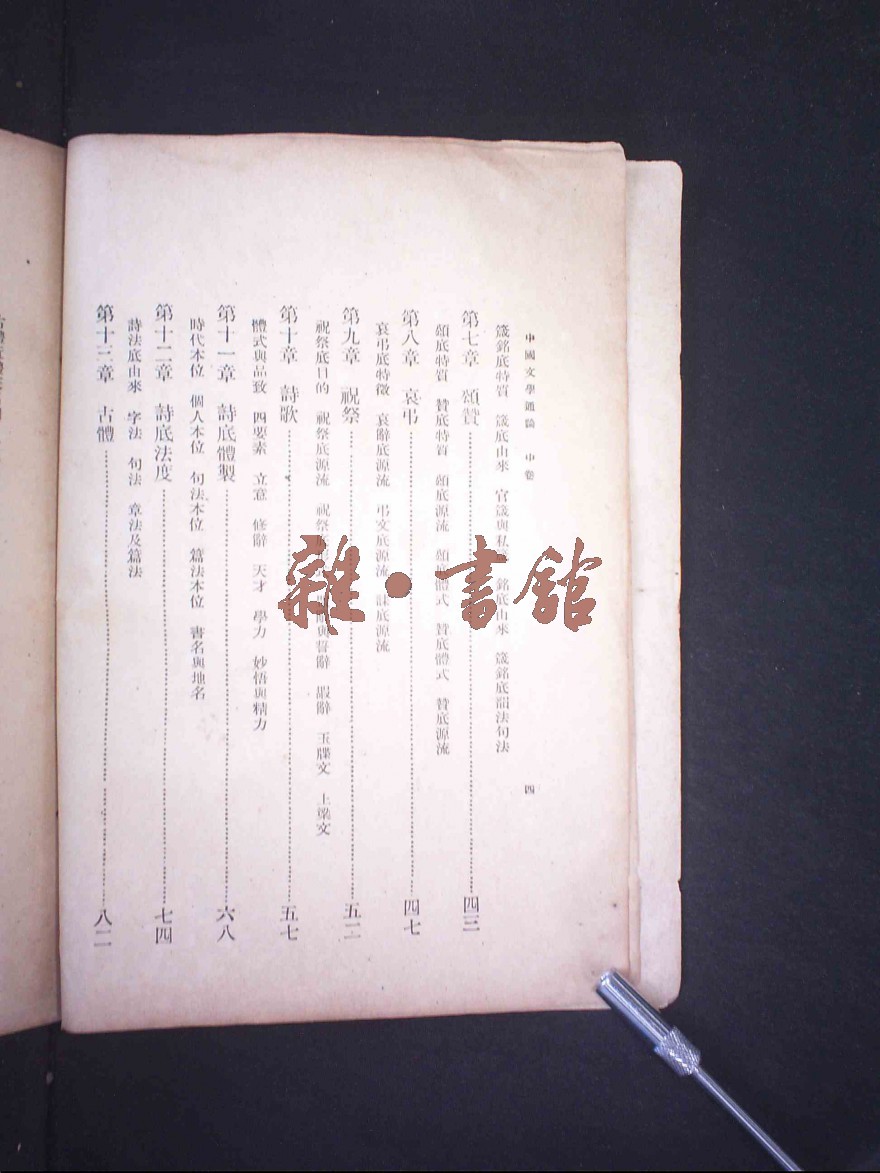 中國文學通論　中卷
四
箴銘底特質　箴底由來　官箴與私　銘底由來　箴銘底韻法句法
第七章　頌贊…………四三
頌底特質　贊底特質　頌底源流　頌底體式　贊底體式　贊底源流
第八章　哀弔…………四七
哀弔底特徵　哀辭底源流　弔文底源流　誄底源流
第九章　祝祭…………五二
祝祭底目的　祝祭底源流　祝祭　與誓辭　嘏辭　玉牒文　上梁文
第十章　詩歌…………五七
體式與品致　四要素　立意　修辭　天才　學力　妙悟與精力
第十一章　詩底體製…………六八
時代本位　個人本位　句法本位　篇法本位　書名與地名
第十二章　詩底法度…………七四
詩法底由來　字法　句法　章法及篇法
第十三章　古體…………八二
雜·書館